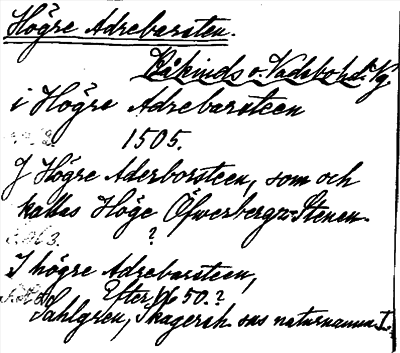 Högre Adrebarsten.
Kåkinds o. Vadsbo hd.
i Högre Adrebarsteen
1505.
J Högre Aderborsteen, som och
kallas Höge Öfwerbergz-Stenen
?
I högre Adrebarsteen,
Efter 50.?
Sahlgren, Skagersh. sns naturnamn I.